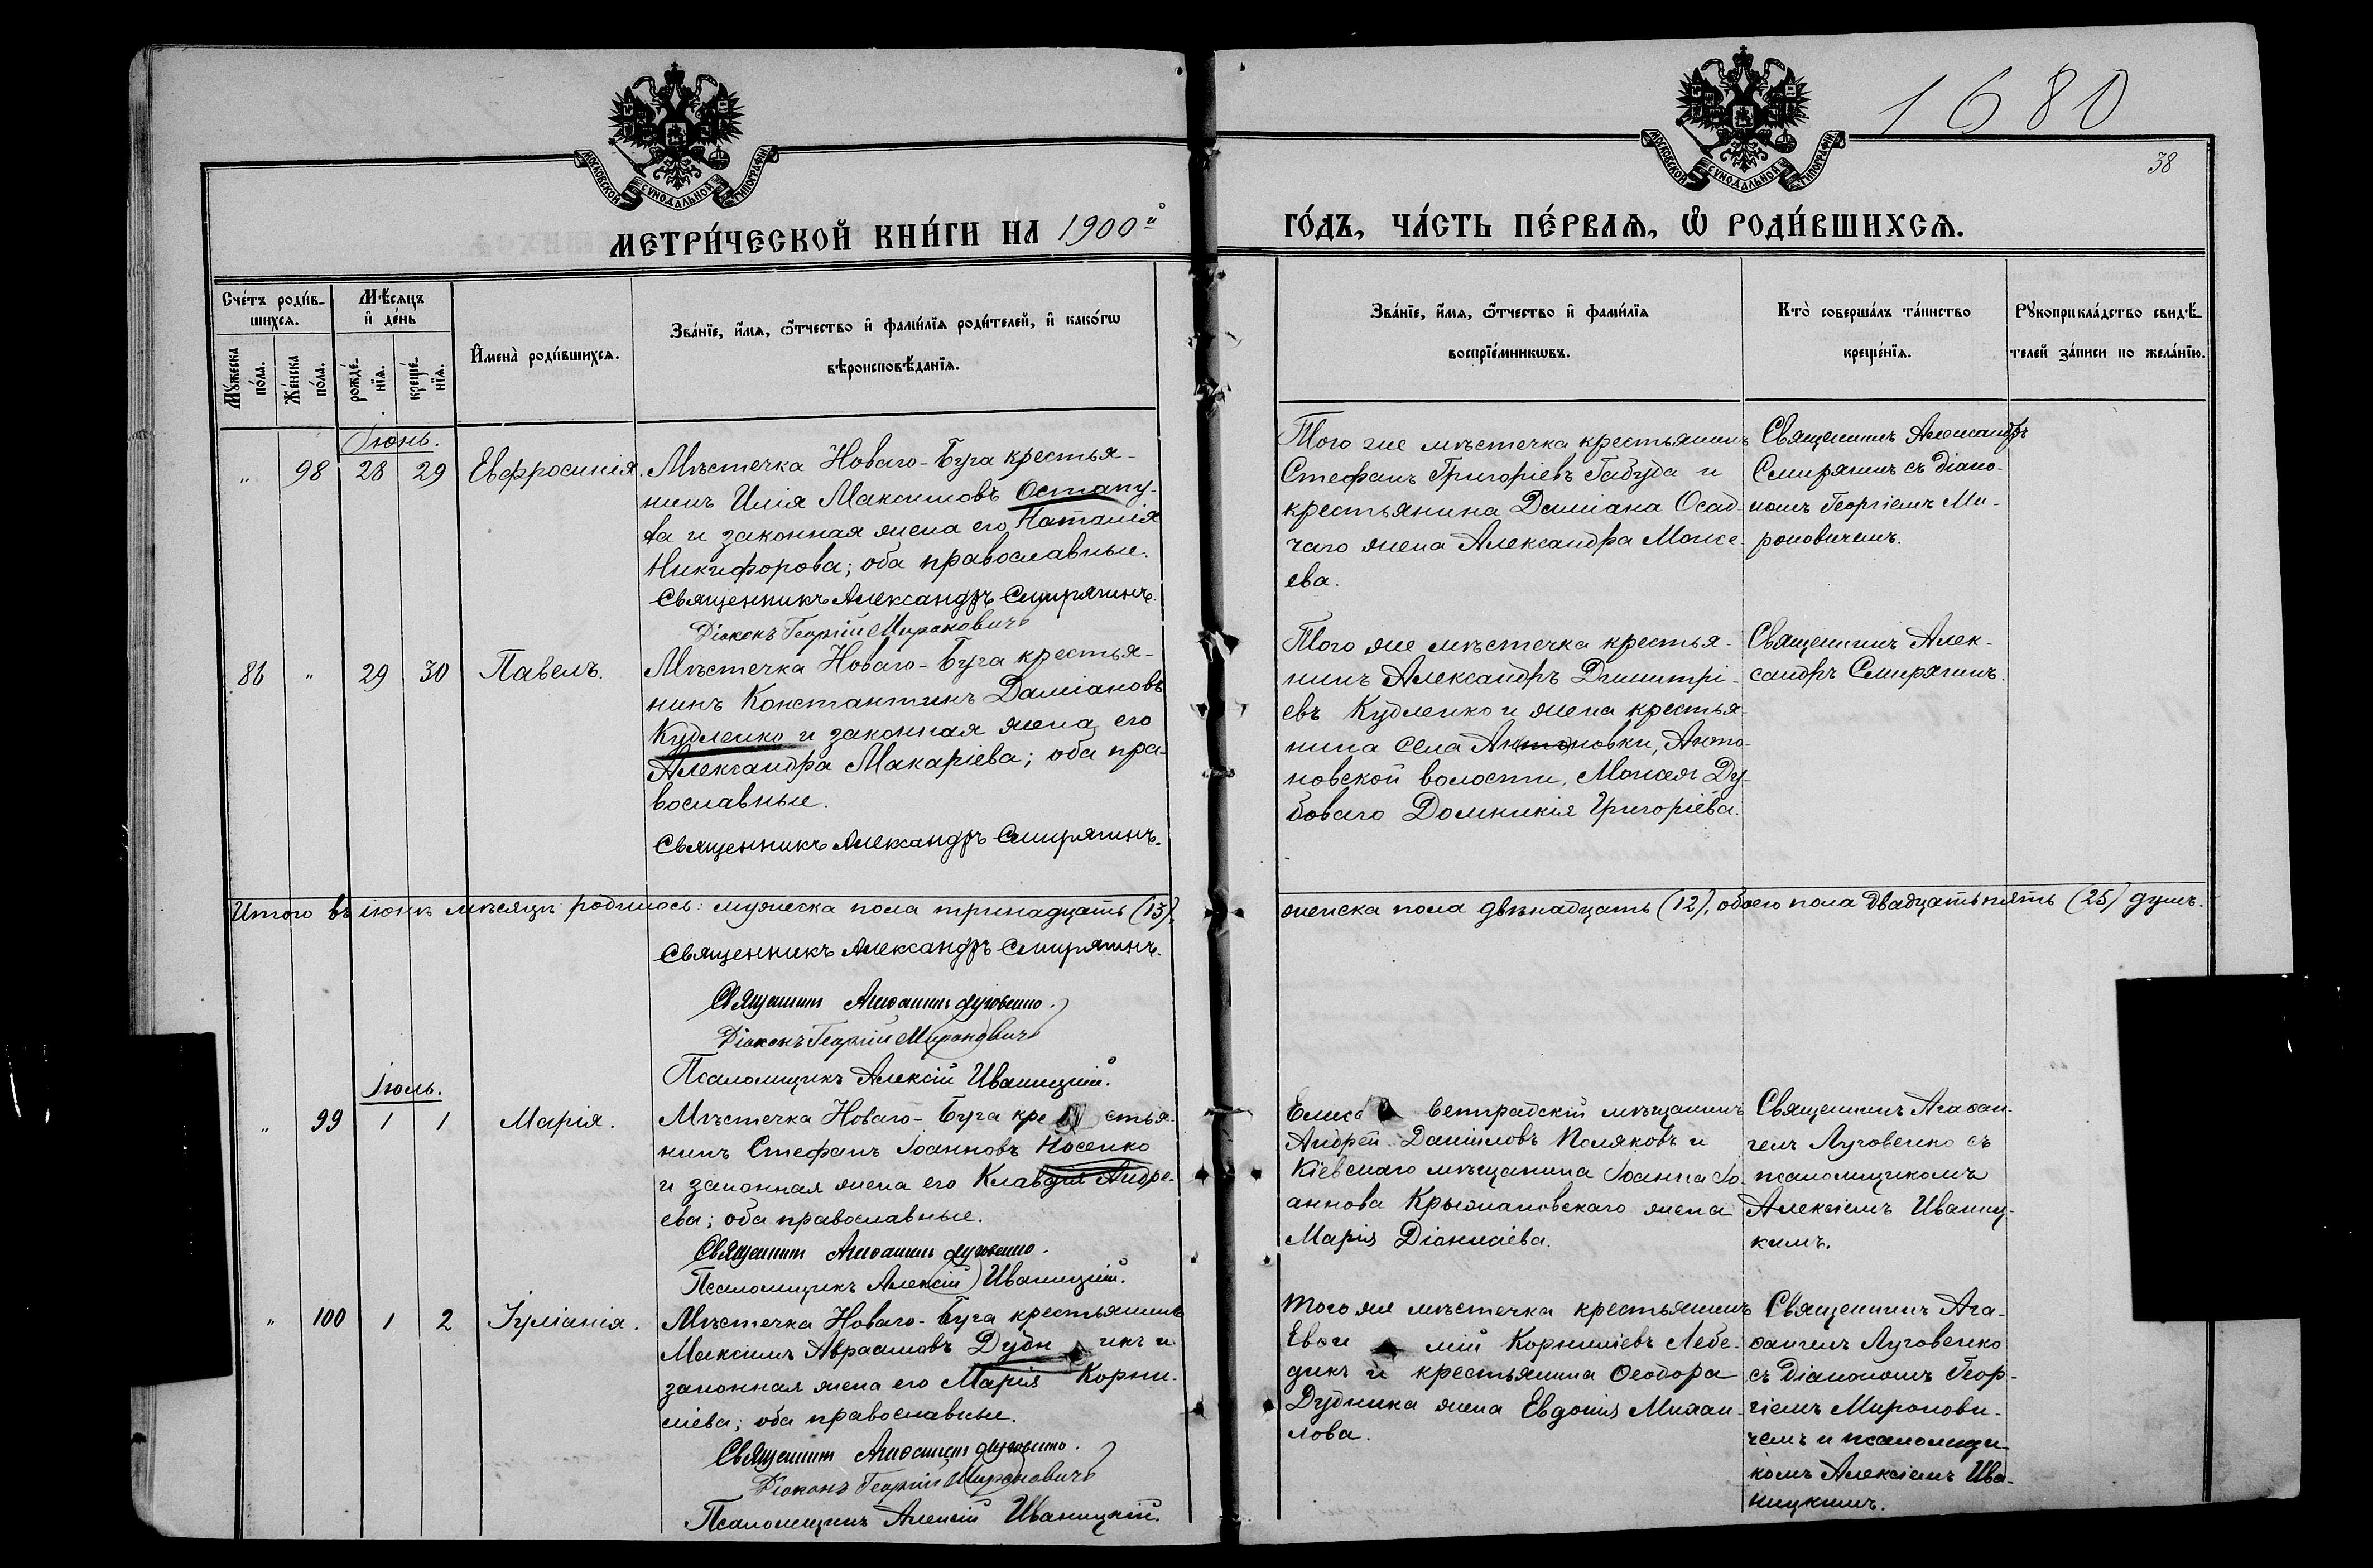 1680
38
МОСКОВСКОЙ СѴНОДАЛЬНОЙ ТИПОГРАФІИ
МОСКОВСКОЙ СѴНОДАЛЬНОЙ ТИПОГРАФІИ
МЕТРИ́ЧЕСКОЙ КНИ́ГИ НА 1900й
ГО́ДЪ, ЧА́СТЬ ПЕ́РВАѦ, Ѽ РОДИ́ВШИХСѦ.
Сче́тъ роди́в-
шихсѧ.
Мѣ́сѧцъ
и҆ де́нь
Мꙋ́жеска
по́ла.
Же́нска
по́ла.
рожде́-
нїѧ.
креще́-
нїѧ.
И҆мена̀ роди́вшихсѧ.
Зва́нїе, и҆́мѧ, ѻ҆́тчество и҆ фами́лїѧ роди́телей, и҆ како́гѡ
вѣроисповѣ́данїѧ.
Зва́нїе, и҆́мѧ, ѻ҆́тчество и҆ фами́лїѧ
воспрїе́мникѡвъ.
Кто̀ соверша́лъ та́инство
креще́нїѧ.
Рꙋкоприкла́дство свидѣ́-
телей за́писи по жела́нїю.
Іюнь.
" 98 28 29 Евфросинія.
Мѣстечка Новаго-Буга крестья-
нинъ Илія Максимовъ Остапу-
ха и законная жена его Наталія
Никифорова; оба православные.
Священникъ Александръ Смирягинъ.
Діаконъ Георгій Мироновичъ
Того же мѣстечка крестьянинъ
Стефанъ Григоріевъ Габуда и
крестьянина Даміана Осад-
чаго жена Александра Моисе-
ева.
Священникъ Александръ
Смирягинъ съ діако-
номъ Георгіемъ Ми-
роновичемъ.
86 " 29 30 Павелъ.
Мѣстечка Новаго-Буга крестья-
нинъ Константинъ Даміановъ
Кудленко и законная жена его
Александра Макаріева; оба пра-
вославные.
Священникъ Александръ Смирягинъ.
Того же мѣстечка крестья-
нинъ Александръ Димитрі-
евъ Кудленко и жена крестья-
нина села Антоновки, Анто-
новской волости, Моисея Ду-
боваго Домникія Григоріева.
Священникъ Алек-
сандръ Смирягинъ.
Итого въ іюнѣ мѣсяцѣ родилось: мужеска пола тринадцать (13),
женска пола двѣнадцать (12), обоего пола двадцать пять (25) душъ.
Священникъ Александръ Смирягинъ.
Священникъ Агаѳангелъ Луговенко.
Діаконъ Георгій Мироновичъ
Псаломщикъ Алексій Иваницкій.
Іюль.
" 99 1 1 Марія.
Мѣстечка Новаго-Буга кре стья-
нинъ Стефанъ Іоанновъ Носенко
и законная жена его Клавдія Андре-
ева; оба православные.
Священникъ Агаѳангелъ Луговенко.
Псаломщикъ Алексій Иваницкій.
Елиса ветградскій мѣщанинъ
Андрей Даніиловъ Поляковъ и
Кіевскаго мѣщанина Іоанна Іо-
аннова Крыжановскаго жена
Марія Діонисіева.
Священникъ Агаѳан-
гелъ Луговенко съ
псаломщикомъ
Алексіемъ Иваниц-
кимъ.
" 100 1 2 Іуліанія.
Мѣстечка Новаго-Буга крестьянинъ
Максимъ Авраамовъ Дудн икъ и
законная жена его Марія Корни-
ліева; оба православные.
Священникъ Агаѳангелъ Луговенко.
Діаконъ Георгій Мироновичъ
Псаломщикъ Алексій Иваницкій.
Того же мѣстечка крестьянинъ
Евѳи мій Корниліевъ Лебе-
дикъ и крестьянина Ѳеодора
Дудника жена Евдокія Михаи-
лова.
Священникъ Ага-
ѳангелъ Луговенко
съ діакономъ Геор-
гіемъ Миронови-
чемъ и псаломщи-
комъ Алексіемъ Ива-
ницкимъ.